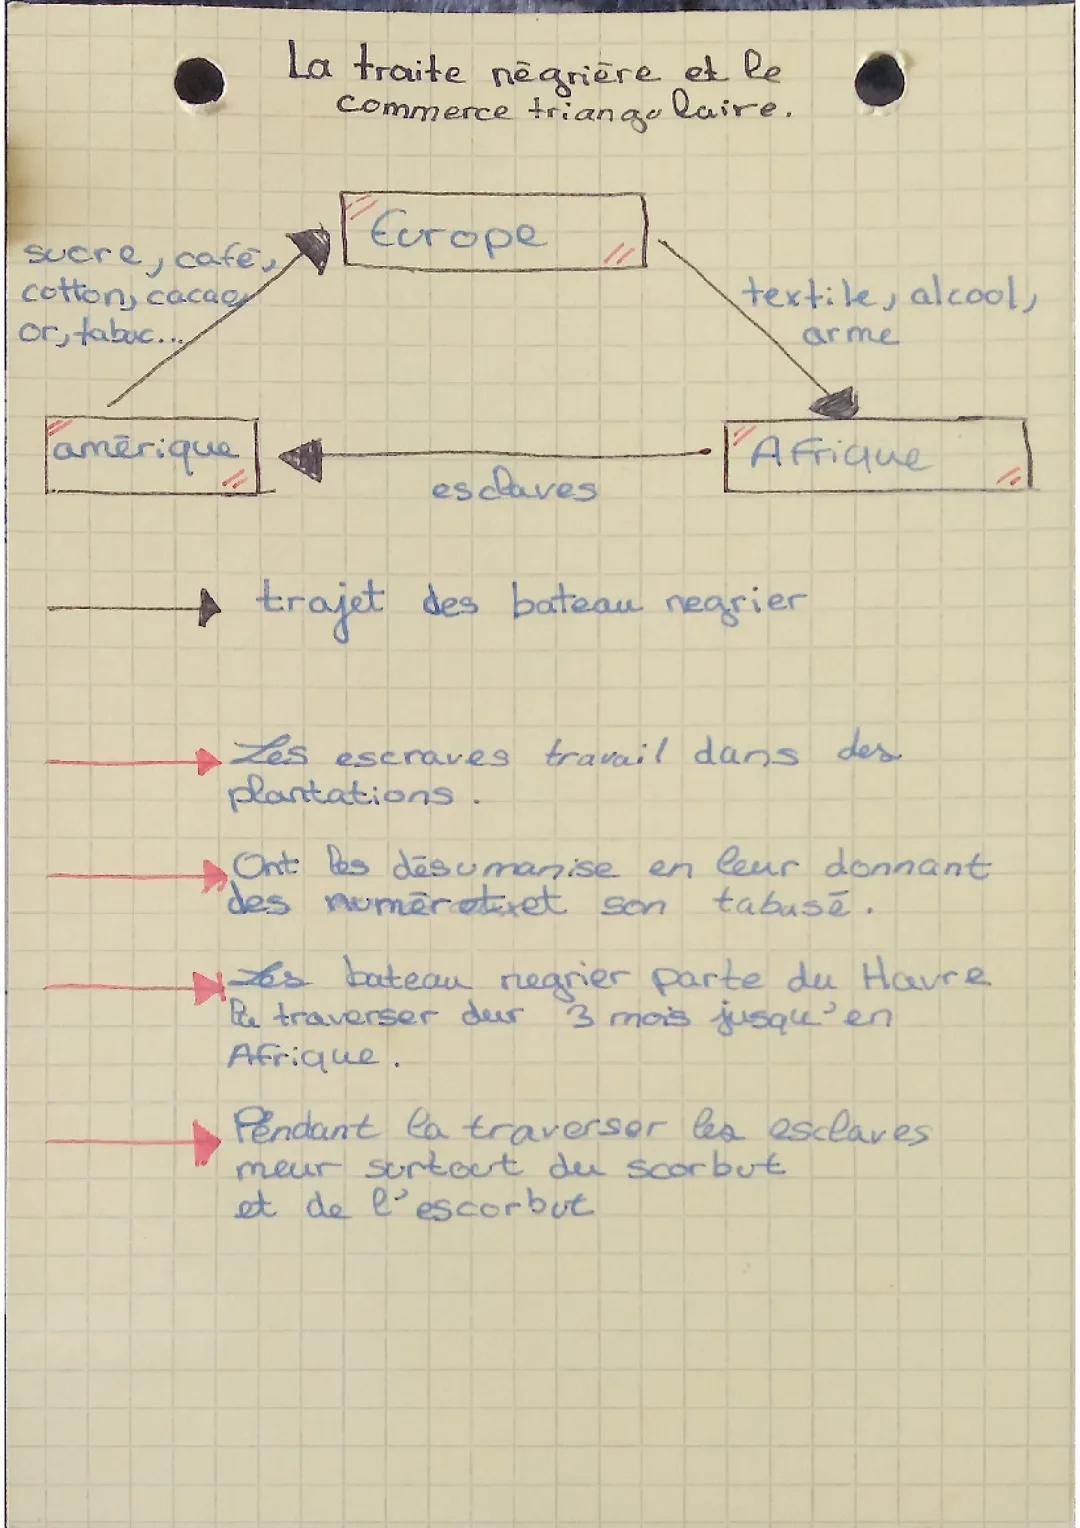 La traite négrière et le
commerce triangulaire.
Europe
sucre, café,
cotton, cacao,
or, tabac...
textile, alcool,
arme
amérique
Afrique
esclaves
trajet des bateau negrier
Les escraves travail dans des
plantations.
Ont les désumanise en leur donnant
des numéro et son tabusé.
Les bateau negrier parte du Havre
la traverser dur 3 mois jusqu'en
Afrique.
Pendant la traverser les esclaves
meur surtout du scorbut
et de l'escorbut